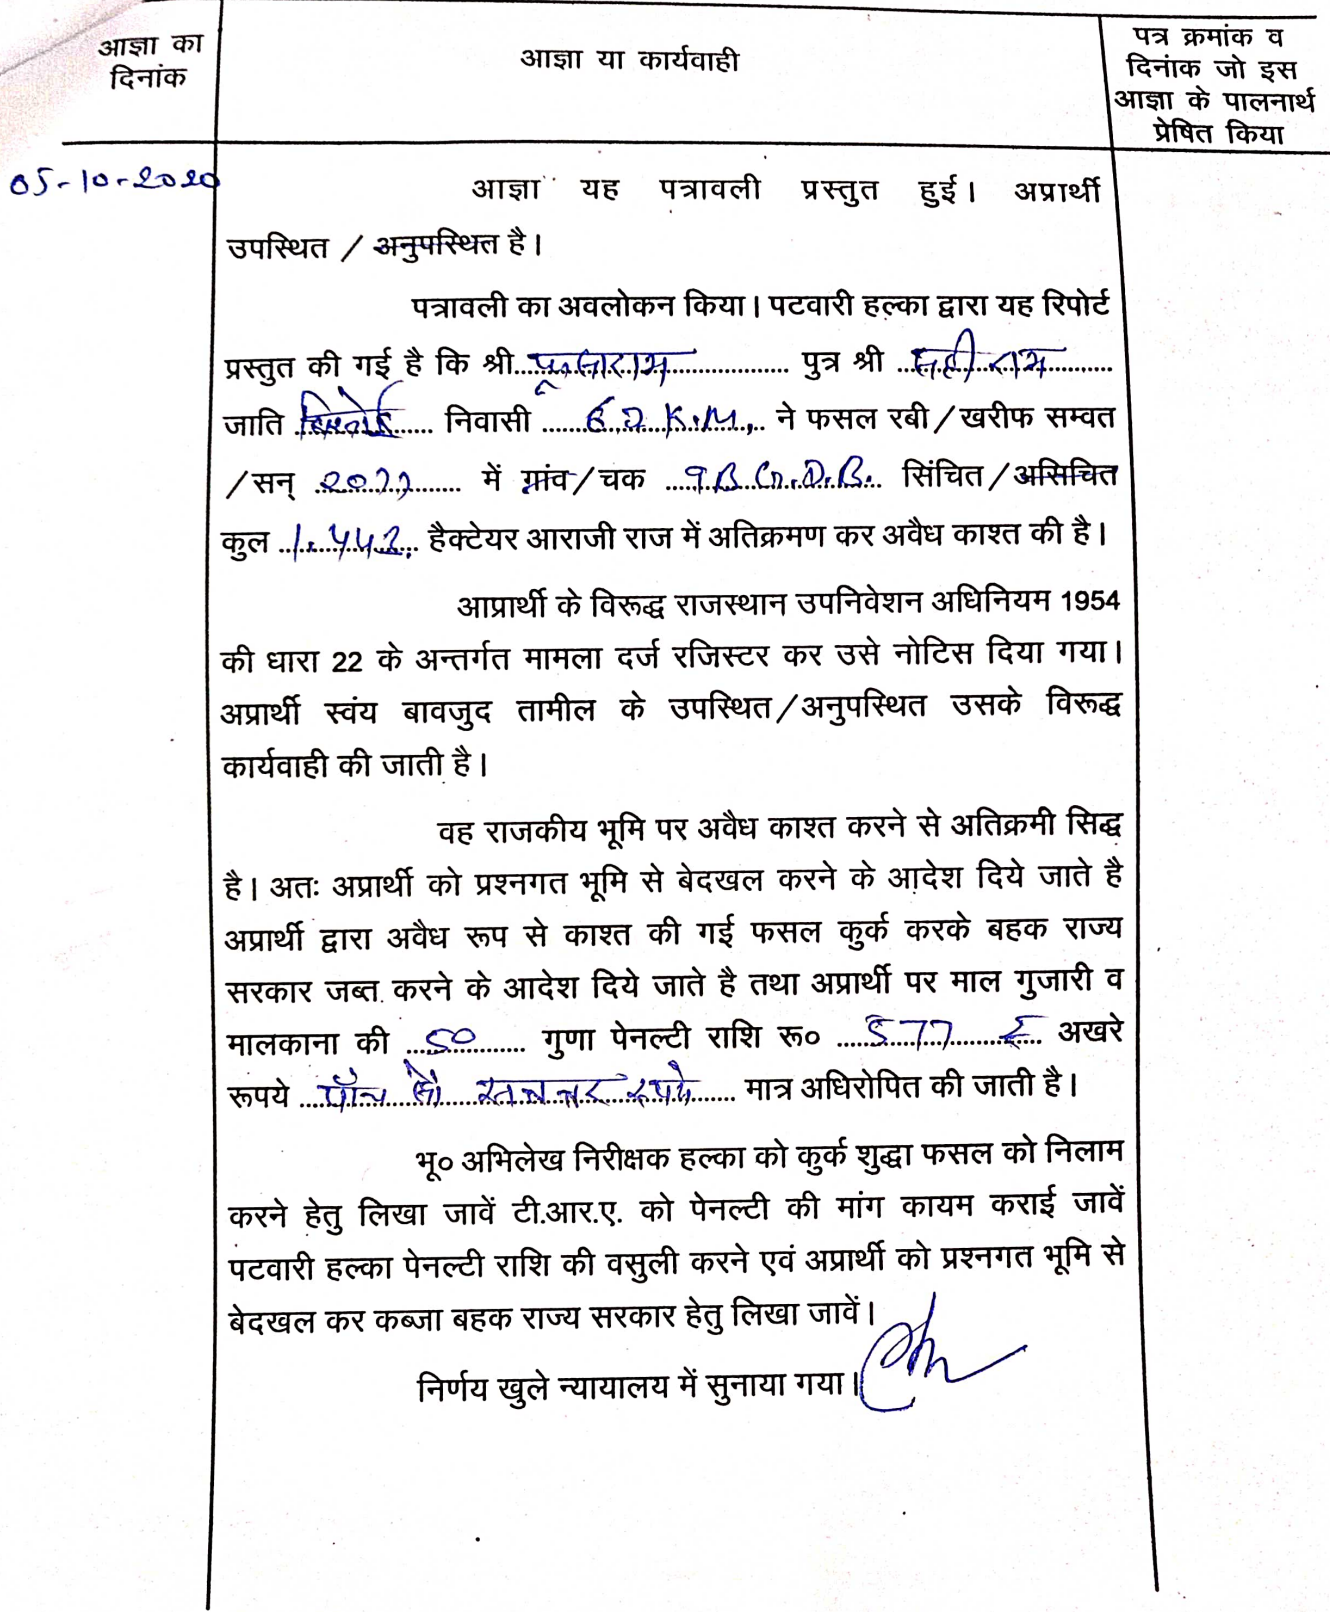 आज्ञा का
दिनांक
आज्ञा या कार्यवाही
पत्र क्रमांक व
दिनांक जो इस
आज्ञा के पालनार्थ
प्रेषित किया
05-10-2020
आज्ञा यह पत्रावली प्रस्तुत हुई। अप्रार्थी
उपस्थित / अनुपस्थित है।
पत्रावली का अवलोकन किया। पटवारी हल्का द्वारा यह रिपोर्ट
प्रस्तुत की गई है कि श्री..फूसाराम.......... पुत्र श्री ...सही राम......
जाति ............ निवासी ........ K.M. ने फसल रबी/खरीफ सम्वत
/सन् .............. में ग्रांव/चक ....9 B G.D.B. सिंचित/असिचित
कुल ..1.442. हैक्टेयर आराजी राज में अतिक्रमण कर अवैध काश्त की है।
आप्रार्थी के विरूद्ध राजस्थान उपनिवेशन अधिनियम 1954
की धारा 22 के अन्तर्गत मामला दर्ज रजिस्टर कर उसे नोटिस दिया गया।
अप्रार्थी स्वंय बावजुद तामील के उपस्थित/अनुपस्थित उसके विरूद्ध
कार्यवाही की जाती है।
वह राजकीय भूमि पर अवैध काश्त करने से अतिक्रमी सिद्ध
है। अतः अप्रार्थी को प्रश्नगत भूमि से बेदखल करने के आदेश दिये जाते है
अप्रार्थी द्वारा अवैध रूप से काश्त की गई फसल कुर्क करके बहक राज्य
सरकार जब्त करने के आदेश दिये जाते है तथा अप्रार्थी पर माल गुजारी व
मालकाना की ..50........ गुणा पेनल्टी राशि रू० ....577....... अखरे
रूपये ..पाँच सौ सतत्तर रूपये.... मात्र अधिरोपित की जाती है।
भू० अभिलेख निरीक्षक हल्का को कुर्क शुद्धा फसल को निलाम
करने हेतु लिखा जावें टी.आर.ए. को पेनल्टी की मांग कायम कराई जावें
पटवारी हल्का पेनल्टी राशि की वसुली करने एवं अप्रार्थी को प्रश्नगत भूमि से
बेदखल कर कब्जा बहक राज्य सरकार हेतु लिखा जावें।
निर्णय खुले न्यायालय में सुनाया गया।